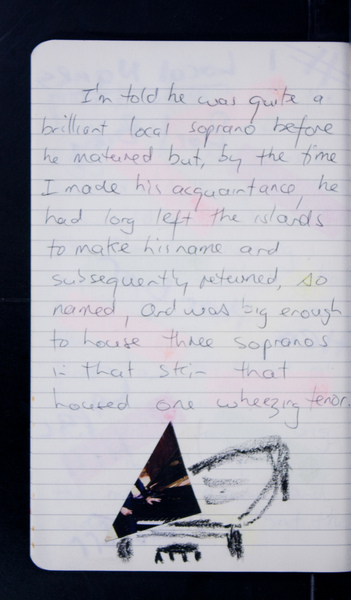 I'm told he was quite a
brilliant local soprano before
he matured but, by the time
I made his acquaintance, he
had long left the islands
to make his name and
subsequently returned, so
named, and was big enough
to house three sopranos
in that skin that
housed one wheezing tenor.